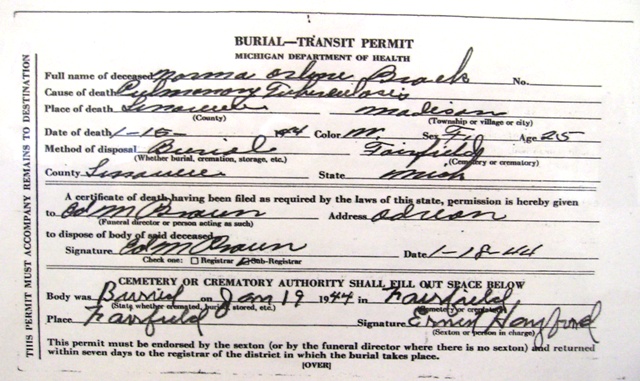 BURIAL—TRANSIT PERMIT
MICHIGAN DEPARTMENT OF HEALTH
Full name of deceased Norma Arlyne Brock No.
Cause of death Pulmonary Tuberculosis
Place of death Lenawee Madison
(County) (Township or village or city)
Date of death 1-15- 1944 Color W. Sex F. Age 25
Method of disposal Burial Fairfield
(Whether burial, cremation, storage, etc.) (Cemetery or crematory)
County Lenawee State Mich
A certificate of death having been filed as required by the laws of this state, permission is hereby given
to Ed M Braun Address Adrian
(Funeral director or person acting as such)
to dispose of body of said deceased.
Signature Ed M Braun Date 1-18-44
Check one: Registrar Sub-Registrar
CEMETERY OR CREMATORY AUTHORITY SHALL FILL OUT SPACE BELOW
Body was Buried on Jan 19 1944 in Fairfield
(State whether cremated, buried, stored, etc.) (Cemetery or crematory)
Place Fairfield Signature Ernest
(Sexton or person in charge)
This permit must be endorsed by the sexton (or by the funeral director where there is no sexton) and returned
within seven days to the registrar of the district in which the burial takes place.
[OVER]
THIS PERMIT MUST ACCOMPANY REMAINS TO DESTINATION